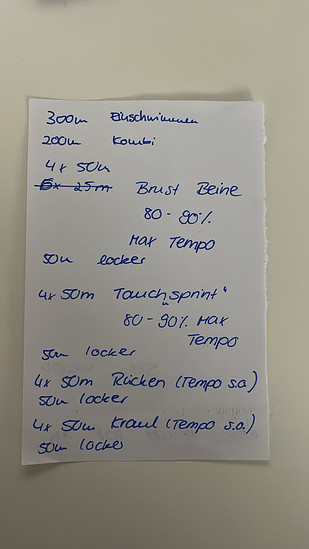 300m Einschwimmen
200m Kombi
4x 50m
6x 25m Brust Beine
80 - 90%
Max Tempo
50m locker
4x 50m "Tauchsprint"
80 - 90% Max
Tempo
50m locker
4x 50m Rücken (Tempo s.o.)
50m locker
4x 50m Kraul (Tempo s.o.)
50m locker